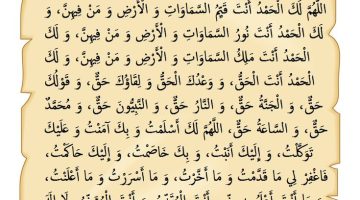 اللَّهُمَّ لَكَ الْحَمْدُ أَنْتَ قَيِّمُ السَّمَاوَاتِ وَ الْأَرْضِ وَ مَنْ فِيهِنَّ، وَ
لَكَ الْحَمْدُ أَنْتَ نُورُ السَّمَاوَاتِ وَ الْأَرْضِ وَ مَنْ فِيهِنَّ، وَ لَكَ
الْحَمْدُ أَنْتَ مَلِكُ السَّمَاوَاتِ وَ الْأَرْضِ وَ مَنْ فِيهِنَّ، وَ لَكَ
الْحَمْدُ أَنْتَ الْحَقُّ، وَ وَعْدُكَ الْحَقُّ وَ لِقَاؤُكَ حَقٌّ، وَ قَوْلُكَ
حَقٌّ، وَ الْجَنَّةُ حَقٌّ، وَ النَّارُ حَقٌّ، وَ النَّبِيُّونَ حَقٌّ، وَ مُحَمَّدٌ
حَقٌّ، وَ السَّاعَةُ حَقٌّ، اللَّهُمَّ لَكَ أَسْلَمْتُ، وَ بِكَ آمَنْتُ، وَ عَلَيْكَ
تَوَكَّلْتُ، وَ إِلَيْكَ أَنَبْتُ، وَ بِكَ خَاصَمْتُ، وَ إِلَيْكَ حَاكَمْتُ،
فَاغْفِرْ لِي مَا قَدَّمْتُ وَ مَا أَخَّرْتُ، وَ مَا أَسْرَرْتُ وَ مَا أَعْلَنْتُ،